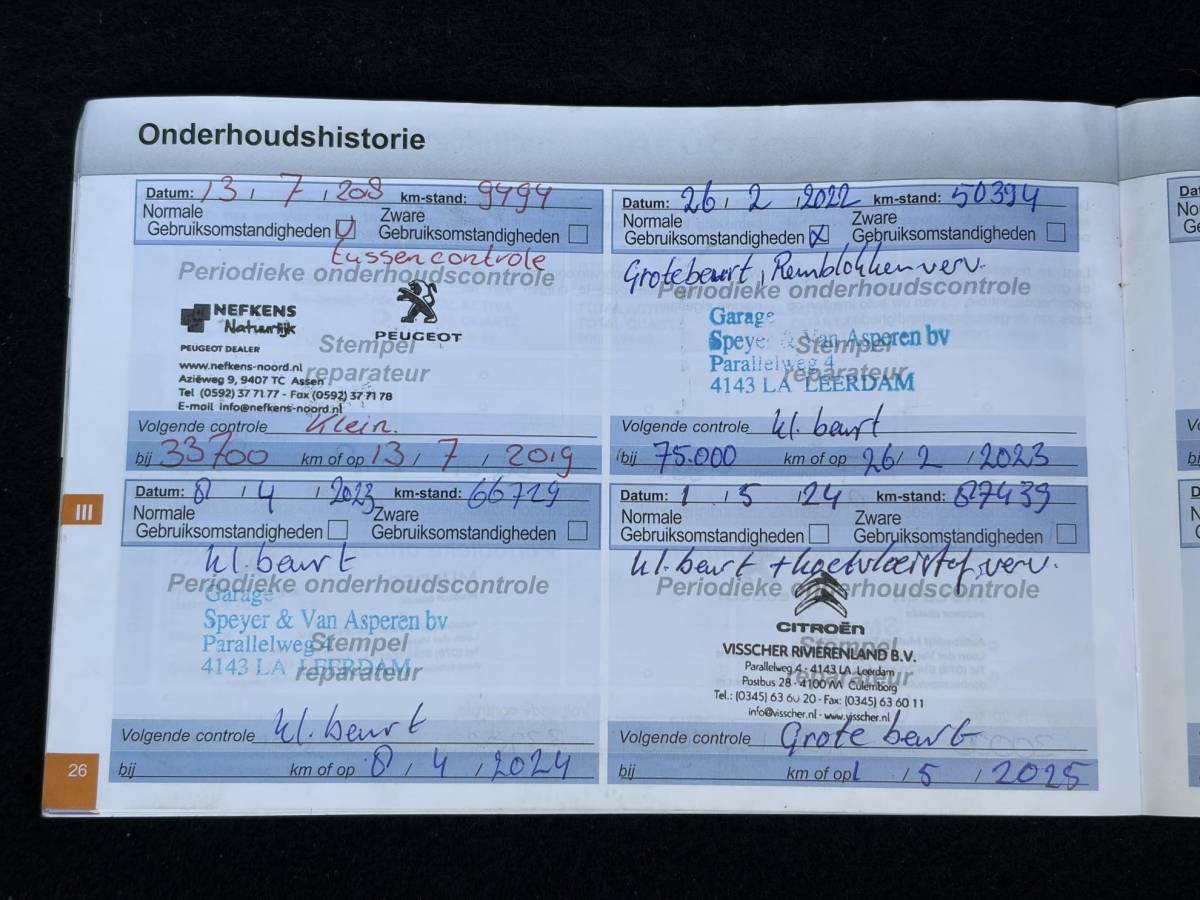 Onderhoudshistorie
Datum: 13 / 7 / 208 km-stand: 9494
Normale Zware
Gebruiksomstandigheden Gebruiksomstandigheden
tussencontrole
Periodieke onderhoudscontrole
NEFKENS
Natuurlijk
PEUGEOT DEALER
PEUGEOT
Stempel
reparateur
www.nefkens-noord.nl
Aziëweg 9, 9407 TC Assen
Tel (0592) 37 71 77 - Fax (0592) 37 71 78
E-mail info@nefkens-noord.nl
Volgende controle Klein.
bij 33700 km of op 13 / 7 / 2019
Datum: 26 / 2 / 2022 km-stand: 50394
Normale Zware
Gebruiksomstandigheden X Gebruiksomstandigheden
Grote beurt, Remblokken verv.
Periodieke onderhoudscontrole
Garage
Speyer & Van Asperen bv
Stempel
Parallelweg 4
reparateur
4143 LA LEERDAM
Volgende controle kl. beurt
bij 75.000 km of op 26/ 2 / 2023
III
Datum: 8 / 4 / 2023 km-stand: 66729
Normale Zware
Gebruiksomstandigheden Gebruiksomstandigheden
kl. beurt
Periodieke onderhoudscontrole
Garage
Speyer & Van Asperen bv
Parallelweg 4
Stempel
4143 LA LEERDAM
reparateur
Volgende controle kl. beurt
bij km of op 8 / 4 / 2024
Datum: 1 / 5 / 24 km-stand: 87439
Normale Zware
Gebruiksomstandigheden Gebruiksomstandigheden
kl. beurt + koelvloeistof verv.
Periodieke onderhoudscontrole
CITROËN
Stempel
VISSCHER RIVIERENLAND B.V.
Parallelweg 4 - 4143 LA Leerdam
reparateur
Postbus 28 - 4100 AA Culemborg
Tel.: (0345) 63 60 20 - Fax: (0345) 63 60 11
info@visscher.nl - www.visscher.nl
Volgende controle Grote beurt
bij km of op 1 / 5 / 2025
26